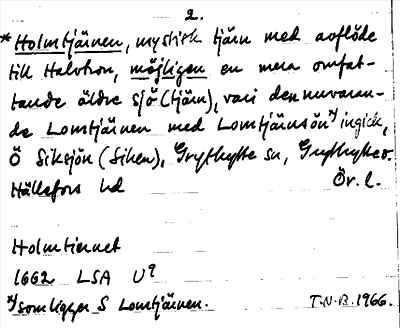 2.
*Holmtjärnen, mystisk tjärn med avflöde
till Halvtron, möjligen en mera omfat-
tande äldre sjö (tjärn), vari den nuvaran-
de Lomtjärnen med Lomtjärnsön x) ingick,
Ö Siksjön (Siken), Grythytte sn, Grythytte o.
Hällefors hd Ör. l.
Holmtiernet
1662 LSA U9
x) som ligger S Lomtjärnen. T.N.B. 1966.